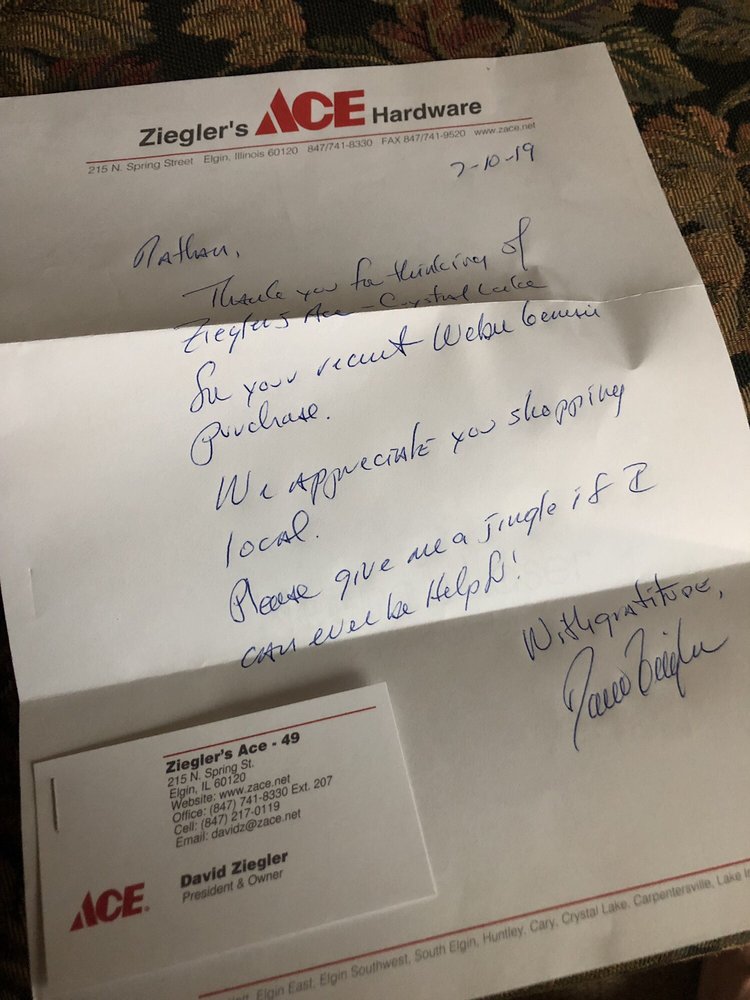 Ziegler's ACE Hardware
215 N. Spring Street Elgin, Illinois 60120 847/741-8330 FAX 847/741-9520 www.zace.net
7-10-19
Nathan,
Thank you for thinking of
Ziegler's Ace - Crystal Lake
for your recent Weber Genesis
purchase.
We appreciate you shopping
local.
Please give me a jingle if I
can ever be Helpful!
With gratitude,
David Ziegler
Ziegler's Ace - 49
215 N. Spring St.
Elgin, IL 60120
Website: www.zace.net
Office: (847) 741-8330 Ext. 207
Cell: (847) 217-0119
Email: davidz@zace.net
David Ziegler
President & Owner
ACE
Elgin East, Elgin Southwest, South Elgin, Huntley, Cary, Crystal Lake, Carpentersville, Lake